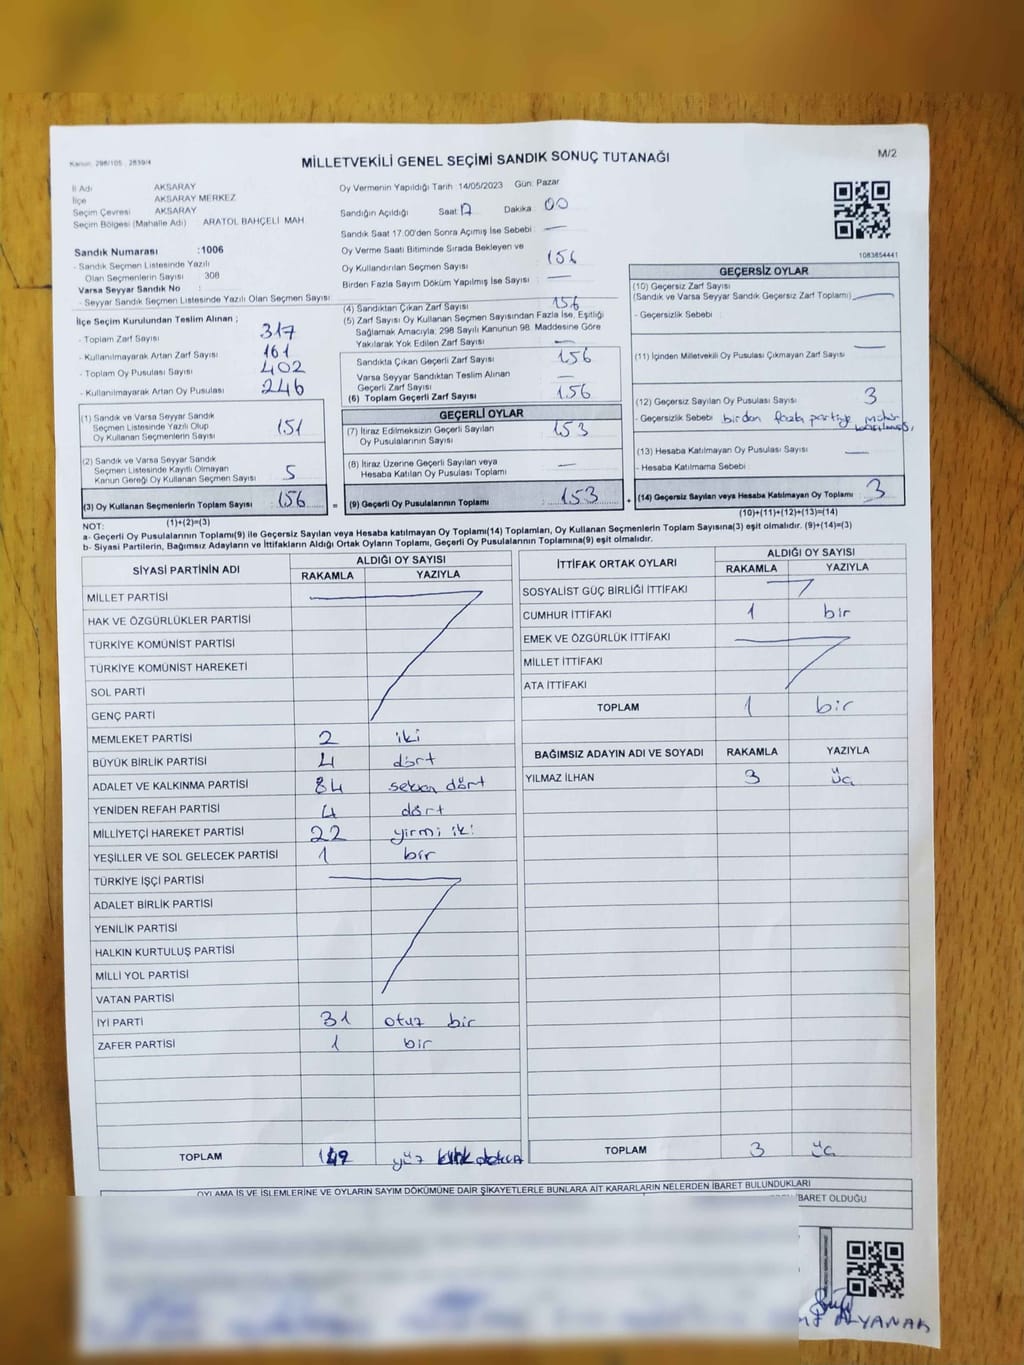 Kanun: 298/105 , 2839/4
MİLLETVEKİLİ GENEL SEÇİMİ SANDIK SONUÇ TUTANAĞI
M/2
İl Adı AKSARAY
İlçe AKSARAY MERKEZ
Seçim Çevresi AKSARAY
Seçim Bölgesi (Mahalle Adı) ARATOL BAHÇELİ MAH.
Sandık Numarası :1006
- Sandık Seçmen Listesinde Yazılı
Olan Seçmenlerin Sayısı : 308
Varsa Seyyar Sandık No :
- Seyyar Sandık Seçmen Listesinde Yazılı Olan Seçmen Sayısı:
Oy Vermenin Yapıldığı Tarih 14/05/2023 Gün: Pazar
Sandığın Açıldığı Saat 17 Dakika 00
Sandık Saat 17:00'den Sonra Açımış İse Sebebi : —
Oy Verme Saati Bitiminde Sırada Bekleyen ve
Oy Kullandırılan Seçmen Sayısı : 156
Birden Fazla Sayım Döküm Yapılmış İse Sayısı : —
1083854441
İlçe Seçim Kurulundan Teslim Alınan ;
- Toplam Zarf Sayısı : 317
- Kullanılmayarak Artan Zarf Sayısı : 161
- Toplam Oy Pusulası Sayısı : 402
- Kullanılmayarak Artan Oy Pusulası : 246
(1) Sandık ve Varsa Seyyar Sandık
Seçmen Listesinde Yazılı Olup
Oy Kullanan Seçmenlerin Sayısı : 151
(2) Sandık ve Varsa Seyyar Sandık
Seçmen Listesinde Kayıtlı Olmayan
Kanun Gereği Oy Kullanan Seçmen Sayısı : 5
(3) Oy Kullanan Seçmenlerin Toplam Sayısı : 156
(1)+(2)=(3)
(4) Sandıktan Çıkan Zarf Sayısı : 156
(5) Zarf Sayısı Oy Kullanan Seçmen Sayısından Fazla İse, Eşitliği
Sağlamak Amacıyla; 298 Sayılı Kanunun 98. Maddesine Göre
Yakılarak Yok Edilen Zarf Sayısı : —
Sandıkta Çıkan Geçerli Zarf Sayısı : 156
Varsa Seyyar Sandıktan Teslim Alınan
Geçerli Zarf Sayısı : —
(6) Toplam Geçerli Zarf Sayısı : 156
GEÇERLİ OYLAR
(7) İtiraz Edilmeksizin Geçerli Sayılan
Oy Pusulalarının Sayısı : 153
(8) İtiraz Üzerine Geçerli Sayılan veya
Hesaba Katılan Oy Pusulası Toplamı : —
= (9) Geçerli Oy Pusulalarının Toplamı : 153
GEÇERSİZ OYLAR
(10) Geçersiz Zarf Sayısı
(Sandık ve Varsa Seyyar Sandık Geçersiz Zarf Toplamı) —
- Geçersizlik Sebebi :
(11) İçinden Milletvekili Oy Pusulası Çıkmayan Zarf Sayısı : —
(12) Geçersiz Sayılan Oy Pusulası Sayısı : 3
- Geçersizlik Sebebi : birden fazla partiye mühür
(13) Hesaba Katılmayan Oy Pusulası Sayısı : —
- Hesaba Katılmama Sebebi :
+ (14) Geçersiz Sayılan veya Hesaba Katılmayan Oy Toplamı : 3
(10)+(11)+(12)+(13)=(14)
NOT:
a- Geçerli Oy Pusulalarının Toplamı(9) ile Geçersiz Sayılan veya Hesaba katılmayan Oy Toplamı(14) Toplamları, Oy Kullanan Seçmenlerin Toplam Sayısına(3) eşit olmalıdır. (9)+(14)=(3)
b- Siyasi Partilerin, Bağımsız Adayların ve İttifakların Aldığı Ortak Oyların Toplamı, Geçerli Oy Pusulalarının Toplamına(9) eşit olmalıdır.
SİYASİ PARTİNİN ADI ALDIĞI OY SAYISI
RAKAMLA YAZIYLA
MİLLET PARTİSİ
HAK VE ÖZGÜRLÜKLER PARTİSİ
TÜRKİYE KOMÜNİST PARTİSİ
TÜRKİYE KOMÜNİST HAREKETİ
SOL PARTİ
GENÇ PARTİ
MEMLEKET PARTİSİ 2 iki
BÜYÜK BİRLİK PARTİSİ 4 dört
ADALET VE KALKINMA PARTİSİ 84 seksen dört
YENİDEN REFAH PARTİSİ 4 dört
MİLLİYETÇİ HAREKET PARTİSİ 22 yirmi iki
YEŞİLLER VE SOL GELECEK PARTİSİ 1 bir
TÜRKİYE İŞÇİ PARTİSİ
ADALET BİRLİK PARTİSİ
YENİLİK PARTİSİ
HALKIN KURTULUŞ PARTİSİ
MİLLİ YOL PARTİSİ
VATAN PARTİSİ
İYİ PARTİ 31 otuz bir
ZAFER PARTİSİ 1 bir
TOPLAM 149 yüz kırk dokuz
İTTİFAK ORTAK OYLARI ALDIĞI OY SAYISI
RAKAMLA YAZIYLA
SOSYALİST GÜÇ BİRLİĞİ İTTİFAKI
CUMHUR İTTİFAKI 1 bir
EMEK VE ÖZGÜRLÜK İTTİFAKI
MİLLET İTTİFAKI
ATA İTTİFAKI
TOPLAM 1 bir
BAĞIMSIZ ADAYIN ADI VE SOYADI RAKAMLA YAZIYLA
YILMAZ İLHAN 3 üç
TOPLAM 3 üç
OYLAMA İŞ VE İŞLEMLERİNE VE OYLARIN SAYIM DÖKÜMÜNE DAİR ŞİKAYETLERLE BUNLARA AİT KARARLARIN NELERDEN İBARET BULUNDUKLARI
İBARET OLDUĞU
ALYANAK